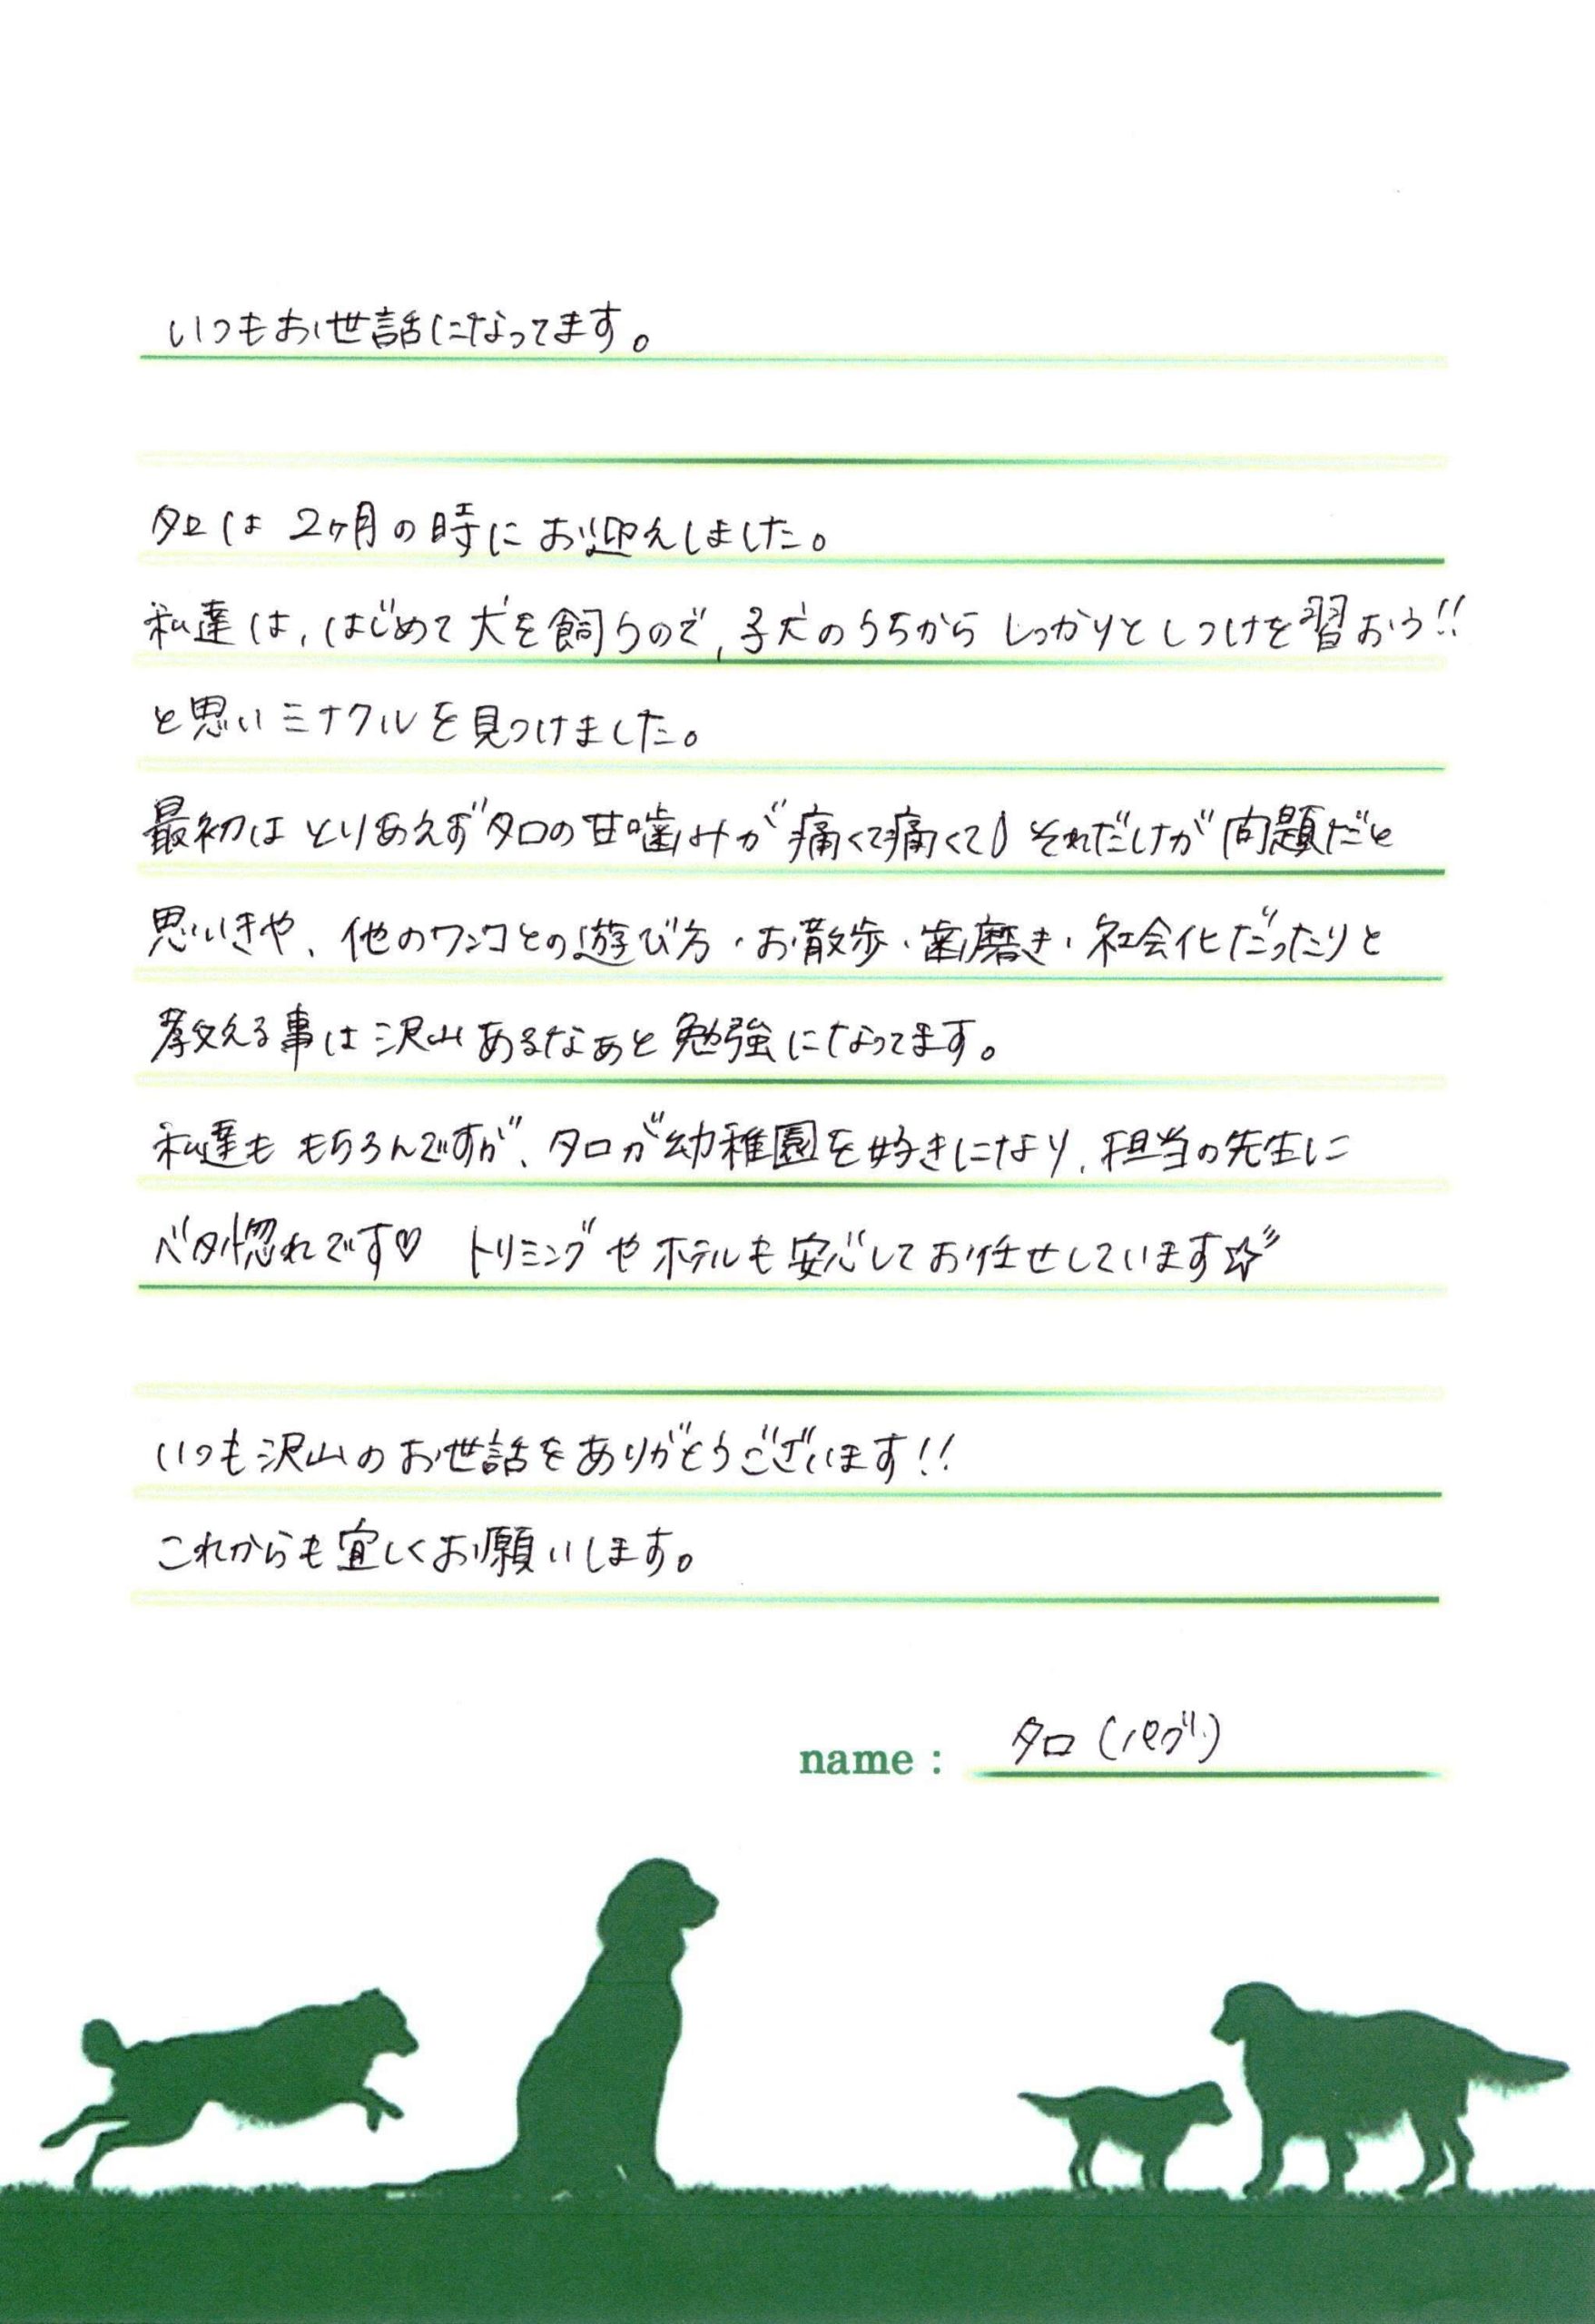 いつもお世話になってます。
タロは 2ヶ月の時に お迎えしました。
私達は、はじめて犬を飼うので、子犬のうちから しっかりとしつけを習おう!!
と思いミナクルを見つけました。
最初は とりあえずタロの甘噛みが 痛くて痛くて それだけが問題だと
思いきや、他のワンコとの遊び方・お散歩・歯磨き・社会化だったりと
教える事は 沢山あるなぁと 勉強になってます。
私達も もちろんですが、タロが幼稚園を好きになり、担当の先生に
ベタ惚れです♡ トリミングやホテルも 安心してお任せしています☆
いつも沢山のお世話をありがとうございます!!
これからも宜しくお願いします。
name : タロ(パグ)